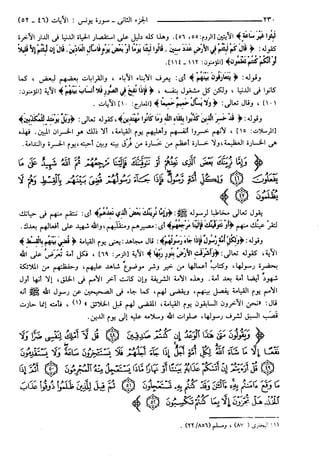 ٢٣٠ الجزء الثاني - سورة يونس: الآيات (٤٦ - ٥٢)
لَبِثُوا غَيْرَ سَاعَةٍ﴾ الآيتين [الروم: ٥٥، ٥٦]. وهذا كله دليل على استقصار الحياة الدنيا في الدار الآخرة
كقوله: ﴿قَالَ كَمْ لَبِثْتُمْ فِي الْأَرْضِ عَدَدَ سِنِينَ . قَالُوا لَبِثْنَا يَوْمًا أَوْ بَعْضَ يَوْمٍ فَاسْأَلِ الْعَادِّينَ. قَالَ إِنْ لَبِثْتُمْ إِلَّا قَلِيلًا
لَوْ أَنَّكُمْ كُنْتُمْ تَعْلَمُونَ﴾ [المؤمنون: ١١٢ - ١١٤].
وقوله: ﴿يَتَعَارَفُونَ بَيْنَهُمْ﴾ أي: يعرف الأبناء الآباء، والقرابات بعضهم لبعض، كما
كانوا في الدنيا، ولكن كل مشغول بنفسه، ﴿فَإِذَا نُفِخَ فِي الصُّورِ فَلَا أَنْسَابَ بَيْنَهُمْ﴾ الآية [المؤمنون:
١٠١]، وقال تعالى: ﴿وَلَا يَسْأَلُ حَمِيمٌ حَمِيمًا﴾ [المعارج: ١٠] الآيات.
وقوله: ﴿قَدْ خَسِرَ الَّذِينَ كَذَّبُوا بِلِقَاءِ اللَّهِ وَمَا كَانُوا مُهْتَدِينَ﴾، كقوله تعالى: ﴿وَيْلٌ يَوْمَئِذٍ لِلْمُكَذِّبِينَ﴾
[المرسلات: ١٥]، لأنهم خسروا أنفسهم وأهليهم يوم القيامة، ألا ذلك هو الخسران المبين. فهذه
هي الخسارة العظيمة، ولا خسارة أعظم من خسارة من فُرّق بينه وبين أحبته، يوم الحسرة والندامة.
وَإِمَّا نُرِيَنَّكَ بَعْضَ الَّذِي نَعِدُهُمْ أَوْ نَتَوَفَّيَنَّكَ فَإِلَيْنَا مَرْجِعُهُمْ ثُمَّ اللَّهُ شَهِيدٌ عَلَىٰ مَا
يَفْعَلُونَ ﴿٤٦﴾ وَلِكُلِّ أُمَّةٍ رَسُولٌ فَإِذَا جَاءَ رَسُولُهُمْ قُضِيَ بَيْنَهُمْ بِالْقِسْطِ وَهُمْ لَا يُظْلَمُونَ
﴿٤٧﴾
يقول تعالى مخاطبا لرسوله ﷺ: ﴿وَإِمَّا نُرِيَنَّكَ بَعْضَ الَّذِي نَعِدُهُمْ﴾ أي: ننتقم منهم في حياتك
لتقر عينك منهم ﴿أَوْ نَتَوَفَّيَنَّكَ فَإِلَيْنَا مَرْجِعُهُمْ﴾ أي: مصيرهم ومنقلبهم، والله شهيد على أفعالهم بعدك.
وقوله: ﴿وَلِكُلِّ أُمَّةٍ رَسُولٌ فَإِذَا جَاءَ رَسُولُهُمْ﴾ قال مجاهد: يعني يوم القيامة ﴿قُضِيَ بَيْنَهُمْ بِالْقِسْطِ﴾
الآية، كقوله تعالى: ﴿وَأَشْرَقَتِ الْأَرْضُ بِنُورِ رَبِّهَا﴾ الآية [الزمر: ٦٩]، فكل أمة تُعرَضُ على الله
بحضرة رسولها، وكتابُ أعمالها من خير وشر موضوعٌ شاهد عليهم، وحفظتهم من الملائكة
شهودٌ أيضاً أمة بعد أمة. وهذه الأمة الشريفة وإن كانت آخر الأمم في الخلق، إلا أنها أول
الأمم يوم القيامة يفصل بينهم، ويقضى لهم، كما جاء في الصحيحين عن رسول الله ﷺ أنه
قال: «نحن الآخرون السابقون يوم القيامة، المقضي لهم قبل الخلائق»(١)، فأمته إنما حازت
قصب السبق لشرف رسولها، صلوات الله وسلامه عليه إلى يوم الدين.
وَيَقُولُونَ مَتَىٰ هَٰذَا الْوَعْدُ إِنْ كُنْتُمْ صَادِقِينَ ﴿٤٨﴾ قُلْ لَا أَمْلِكُ لِنَفْسِي ضَرًّا وَلَا
نَفْعًا إِلَّا مَا شَاءَ اللَّهُ لِكُلِّ أُمَّةٍ أَجَلٌ إِذَا جَاءَ أَجَلُهُمْ فَلَا يَسْتَأْخِرُونَ سَاعَةً وَلَا يَسْتَقْدِمُونَ
﴿٤٩﴾ قُلْ أَرَأَيْتُمْ إِنْ أَتَاكُمْ عَذَابُهُ بَيَاتًا أَوْ نَهَارًا مَاذَا يَسْتَعْجِلُ مِنْهُ الْمُجْرِمُونَ ﴿٥٠﴾ أَثُمَّ إِذَا
مَا وَقَعَ آمَنْتُمْ بِهِ آلْآنَ وَقَدْ كُنْتُمْ بِهِ تَسْتَعْجِلُونَ ﴿٥١﴾ ثُمَّ قِيلَ لِلَّذِينَ ظَلَمُوا ذُوقُوا عَذَابَ
الْخُلْدِ هَلْ تُجْزَوْنَ إِلَّا بِمَا كُنْتُمْ تَكْسِبُونَ ﴿٥٢﴾
(١) البخاري (٨٧٦)، ومسلم (٢٢/٨٥٦).